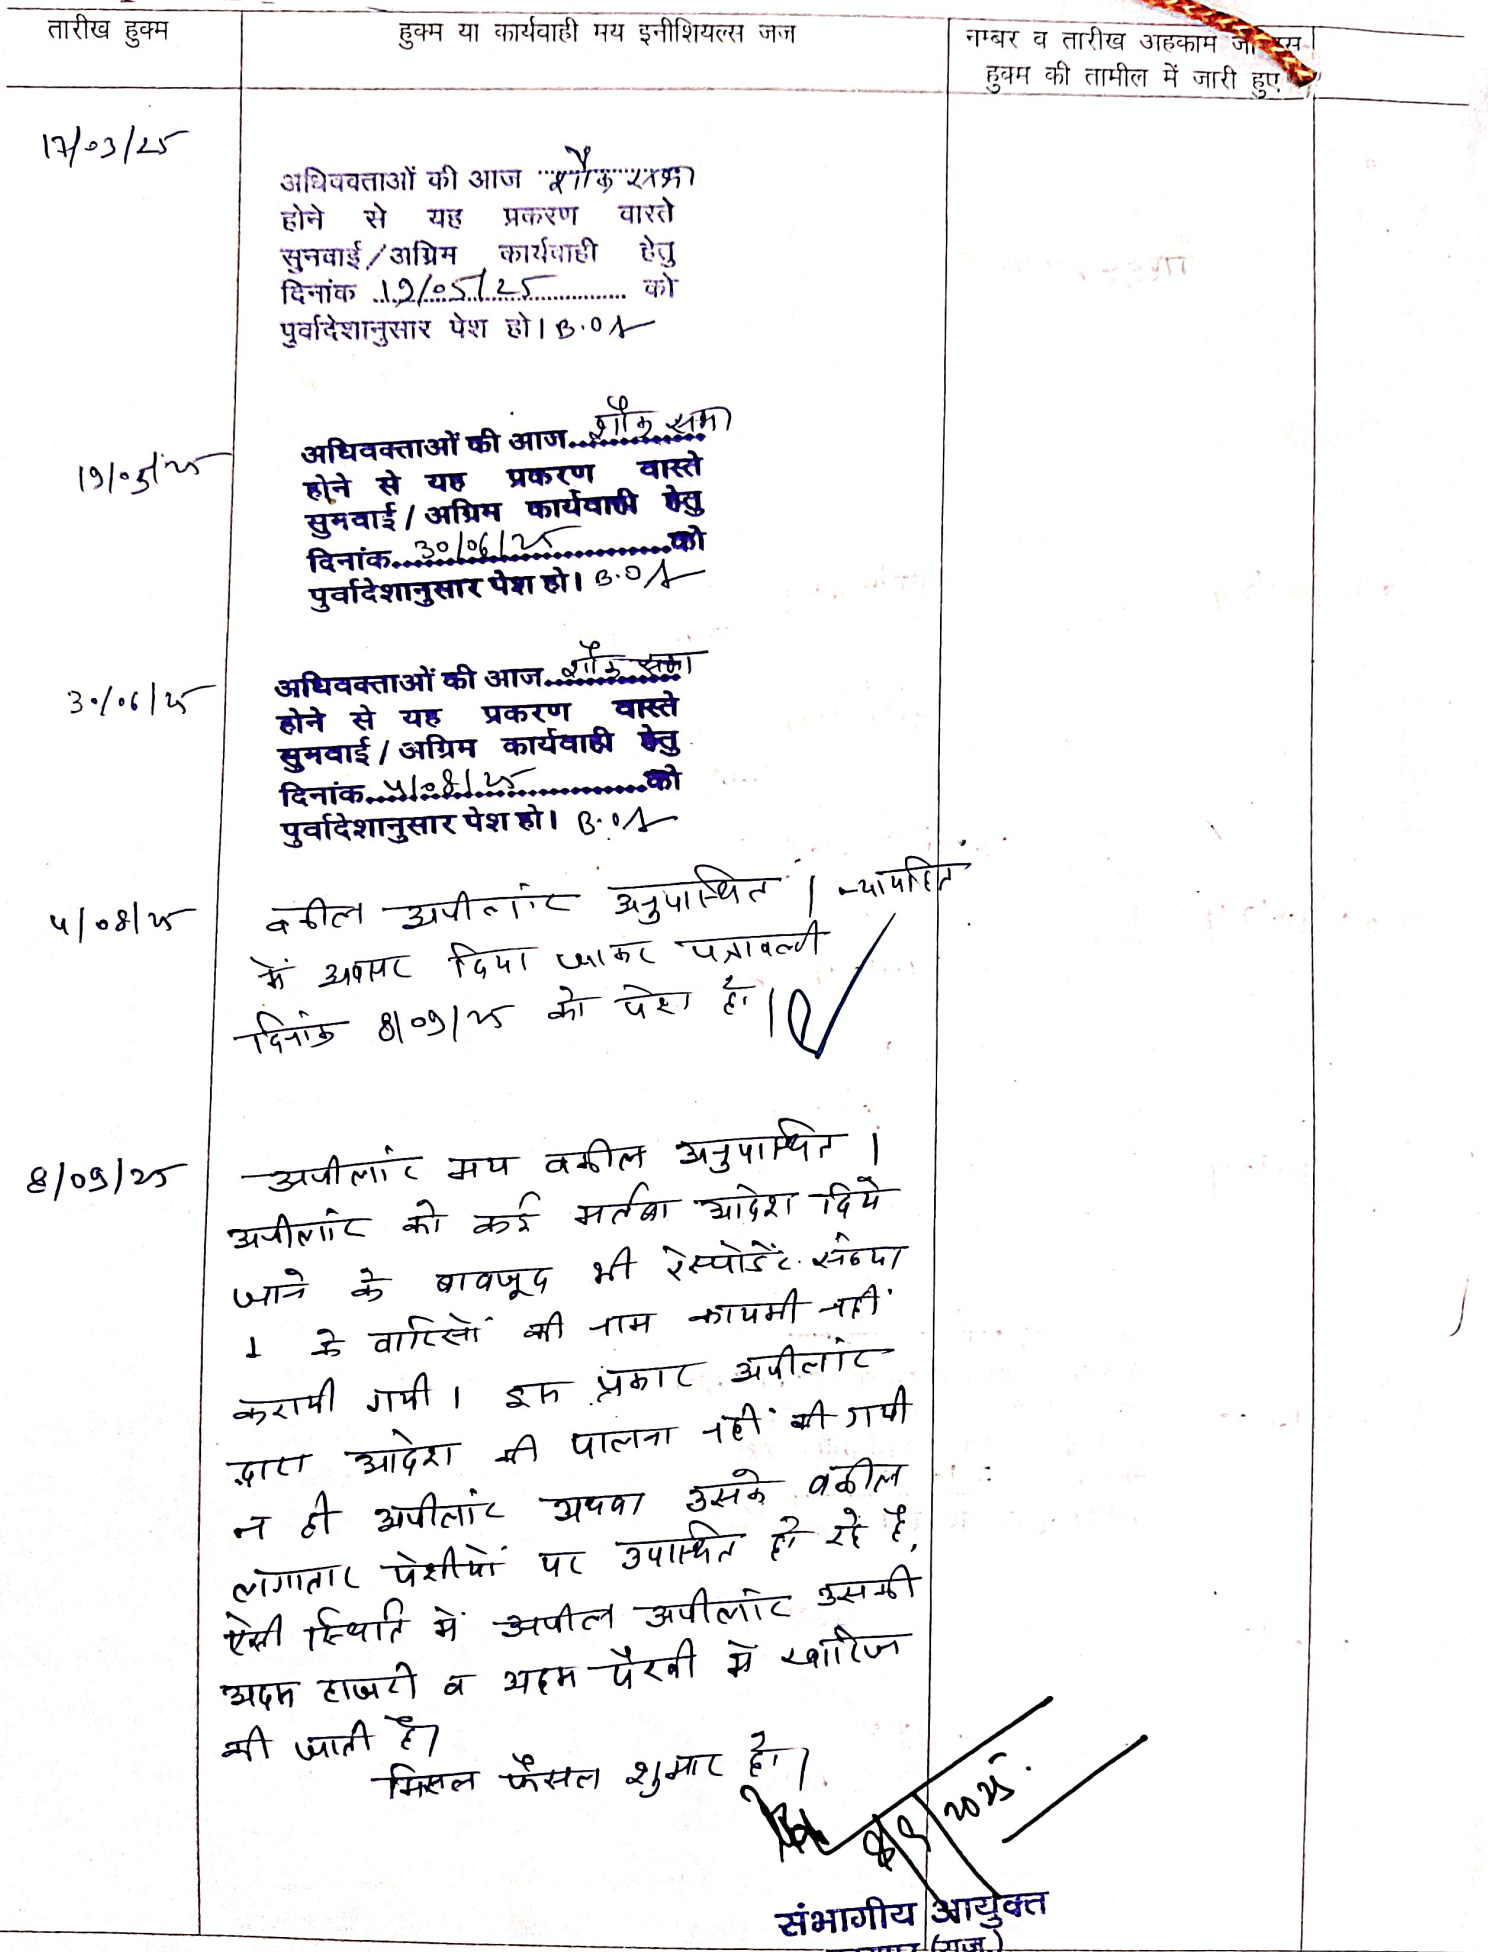 तारीख हुक्म
हुक्म या कार्यवाही मय इनीशियल्स जज
नम्बर व तारीख अहकाम जो इस
हुक्म की तामील में जारी हुए
17/03/25
अधिवक्ताओं की आज शौक सभा
होने से यह प्रकरण वास्ते
सुनवाई/अग्रिम कार्यवाही हेतु
दिनांक 19/05/25 को
पुर्वादेशानुसार पेश हो। B.O
19/05/25
अधिवक्ताओं की आज शौक सभा
होने से यह प्रकरण वास्ते
सुनवाई/अग्रिम कार्यवाही हेतु
दिनांक 30/06/25 को
पुर्वादेशानुसार पेश हो। B.O
30/06/25
अधिवक्ताओं की आज शौक सभा
होने से यह प्रकरण वास्ते
सुनवाई/अग्रिम कार्यवाही हेतु
दिनांक 4/08/25 को
पुर्वादेशानुसार पेश हो। B.O
4/08/25
वकील अपीलांट अनुपस्थित। न्यायहित
में अवसर दिया जाकर पत्रावली
दिनांक 8/09/25 को पेश हो।
8/09/25
अपीलांट मय वकील अनुपस्थित।
अपीलांट को कई मर्तबा आदेश दिये
जाने के बावजूद भी रेस्पोडेंट संख्या
1 के वारिसों की नाम कायमी नहीं
करायी गयी। इस प्रकार अपीलांट
द्वारा आदेश की पालना नहीं की गयी
न ही अपीलांट अथवा उसके वकील
लगातार पेशीयों पर उपस्थित हो रहे है,
ऐसी स्थिति में अपील अपीलांट उसकी
अदम हाजरी व अदम पैरवी में खारिज
की जाती है।
मिसल फैसल शुमार हो।
8/9/2025.
संभागीय आयुक्त
(राज.)